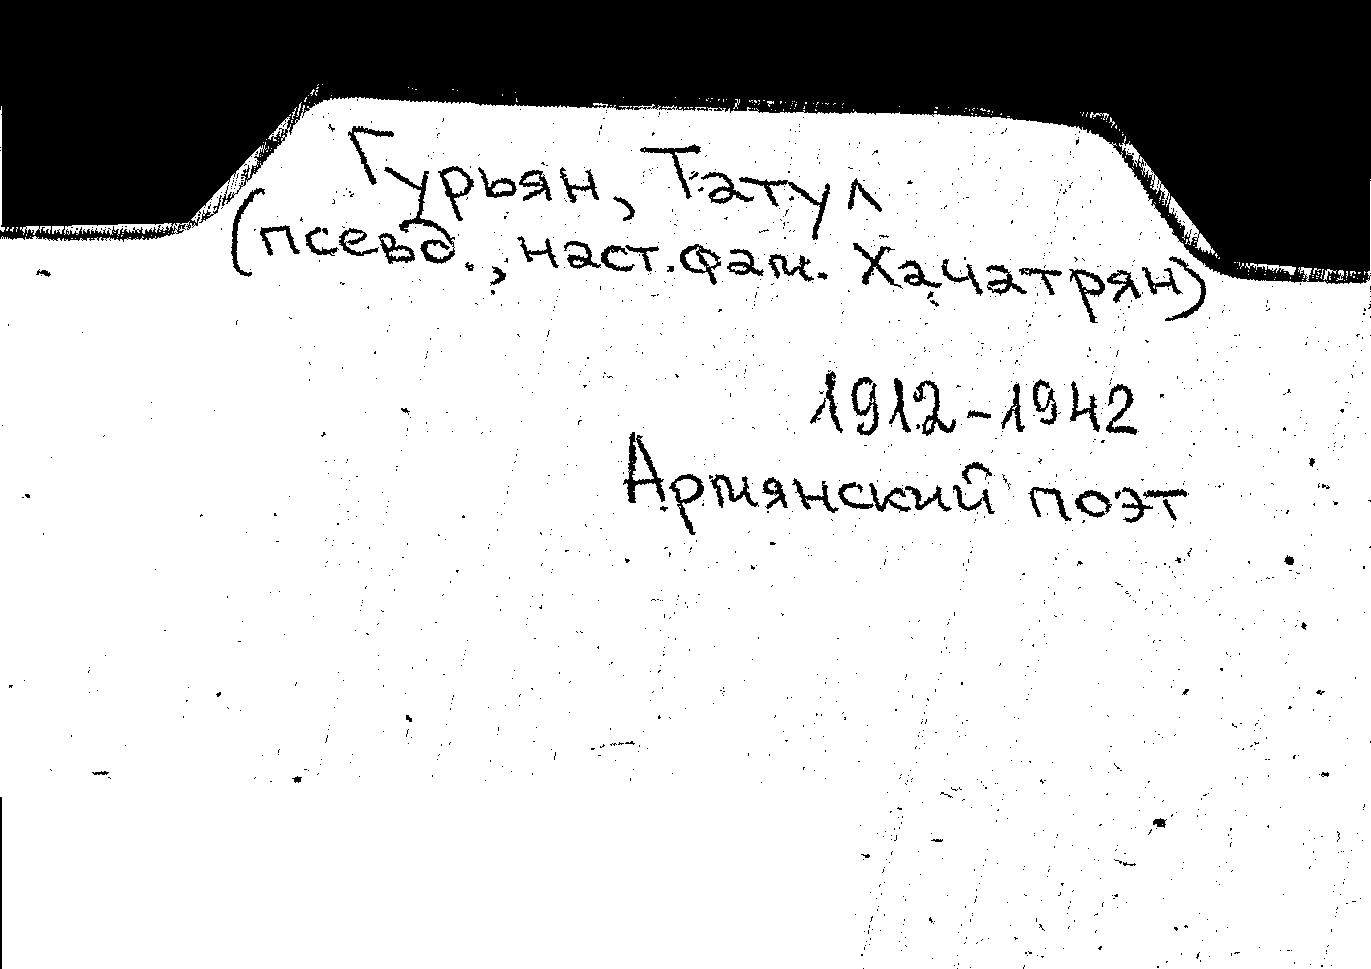 Гурьян, Татул
(псевд., наст. фам. Хачатрян)
1912-1942
Армянский поэт